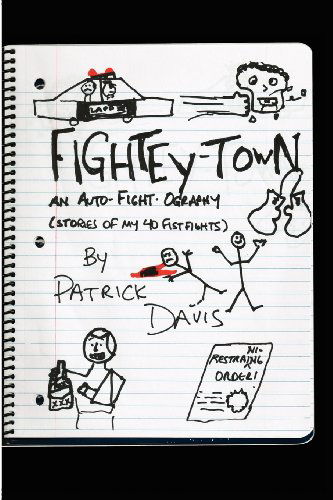 LAPD
FIGHTEY-TOWN
AN AUTO-FIGHT-OGRAPHY
(STORIES OF MY 40 FISTFIGHTS)
BY
PATRICK
DAVIS
XXX
NI-
RESTRAINING
ORDER!